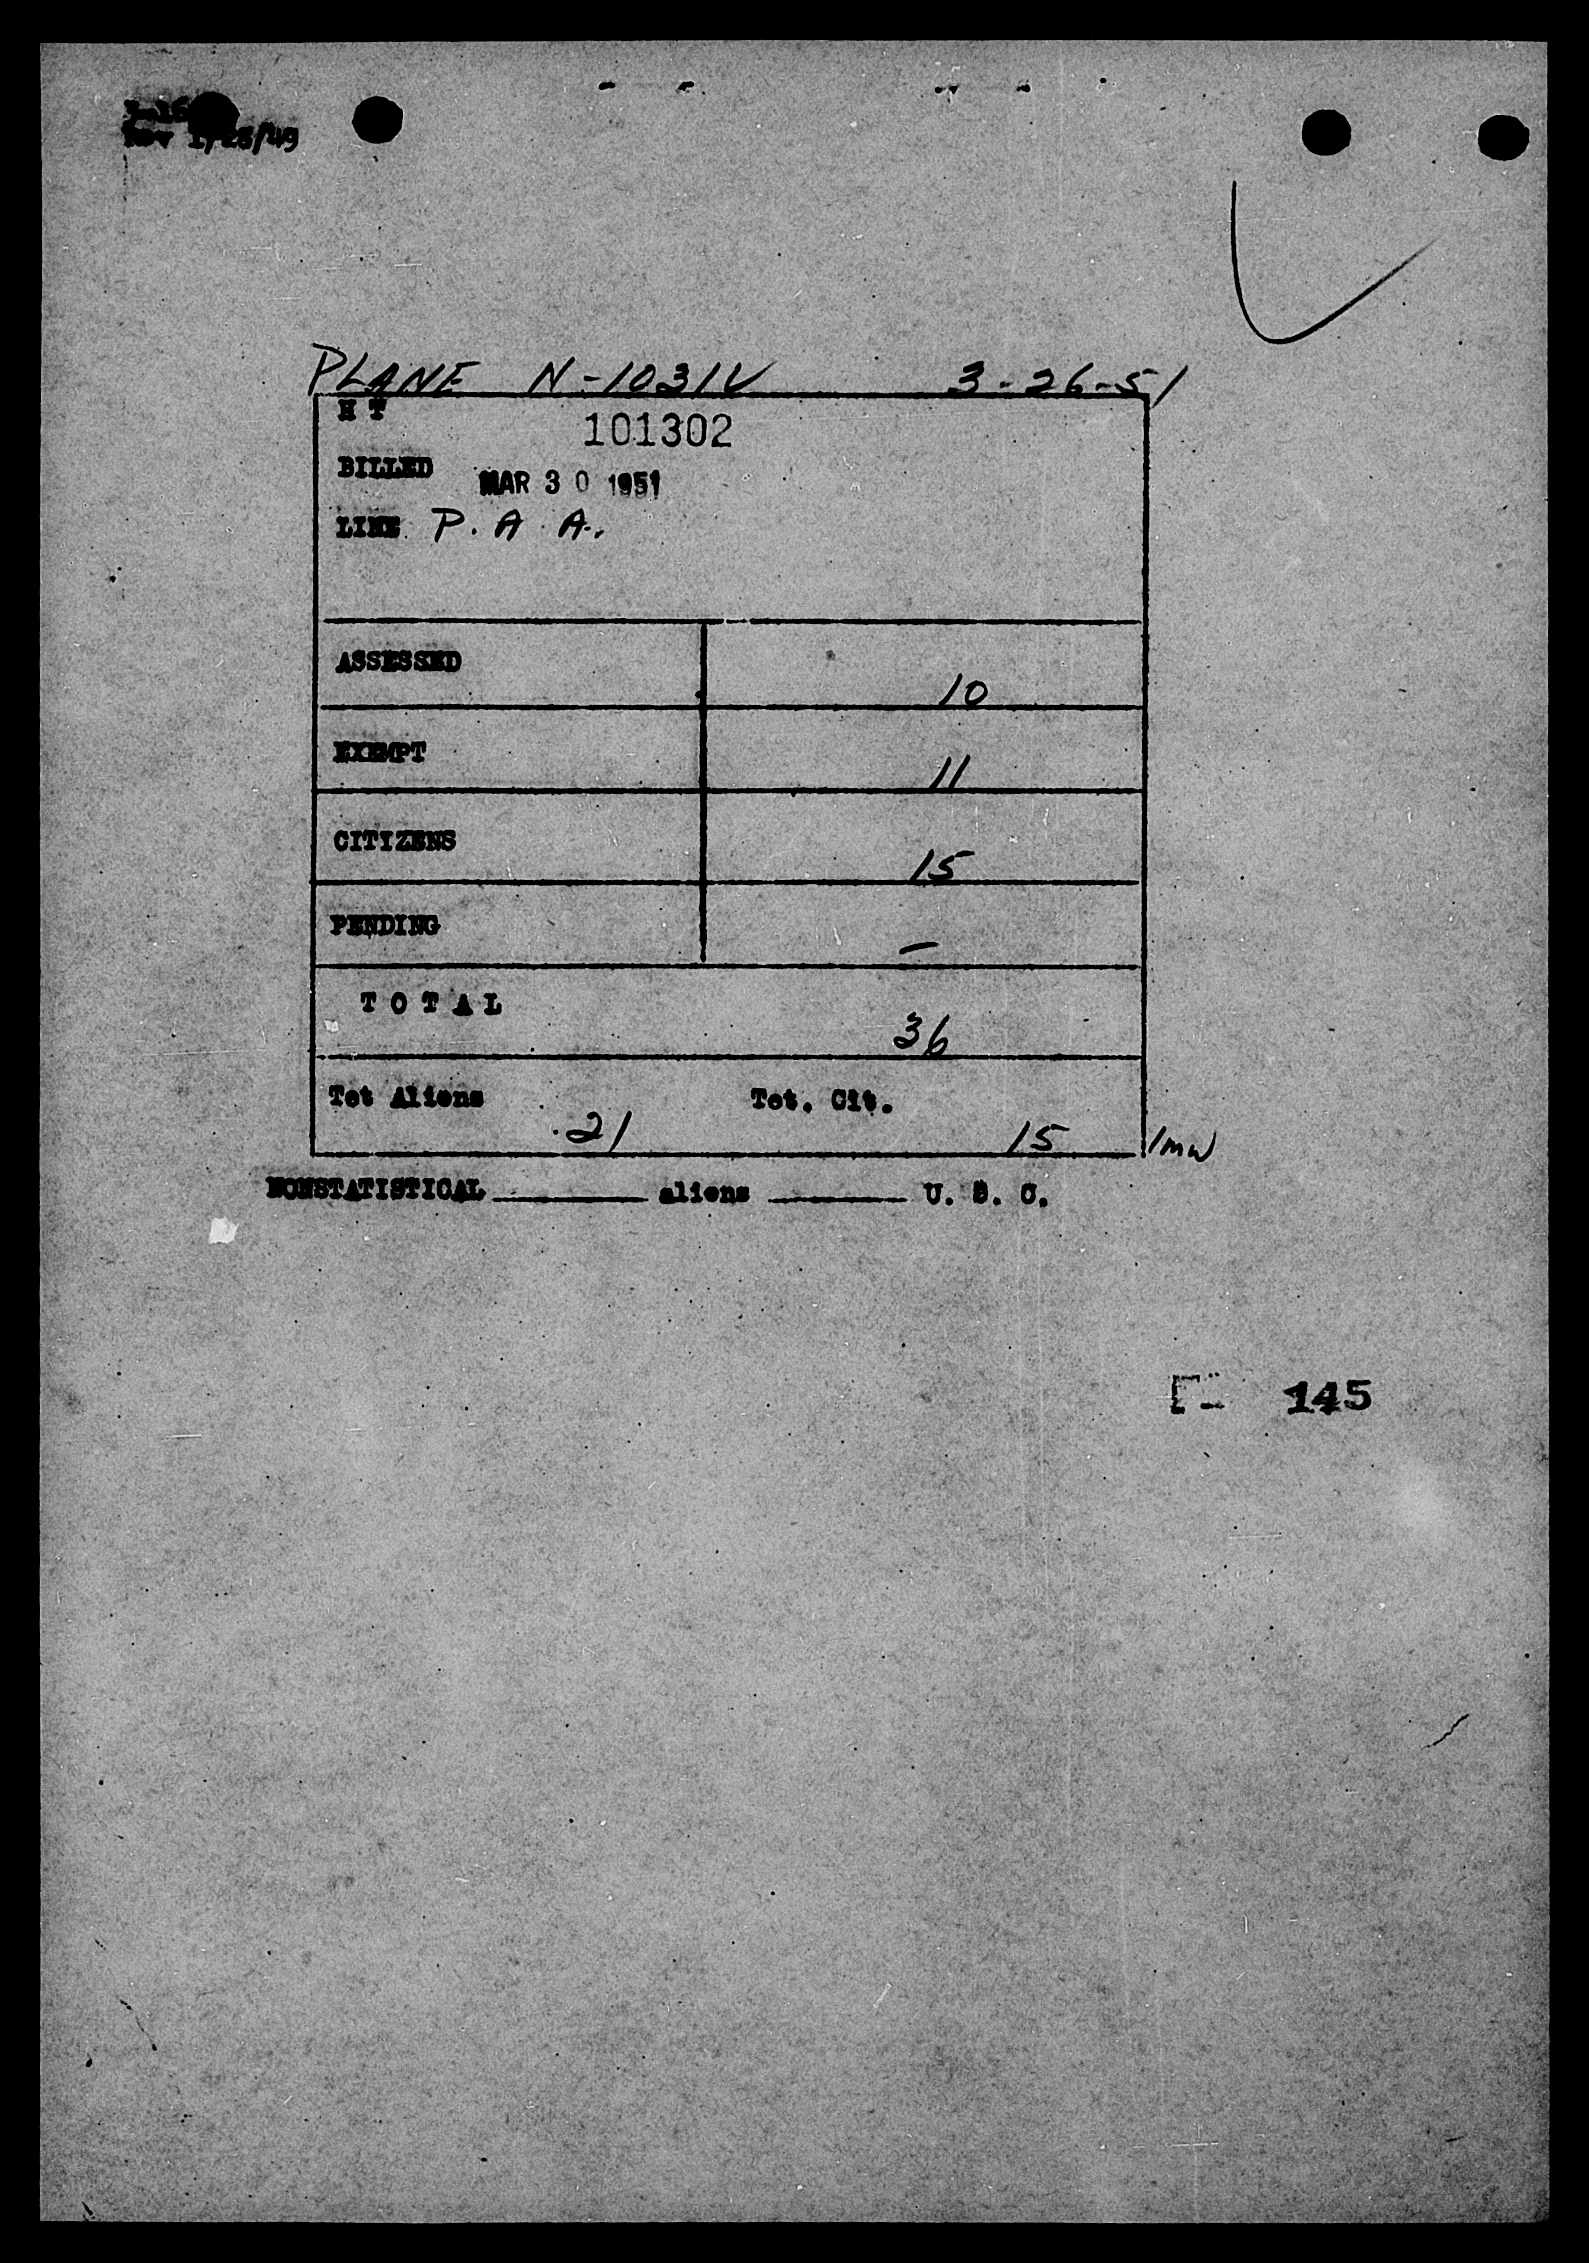 3-16
Rev 1/28/49
PLANE N-1031V 3-26-51
H T
101302
BILLED MAR 30 1951
LINE P. A. A.
ASSESSED 10
EXEMPT 11
CITIZENS 15
PENDING –
TOTAL 36
Tot Aliens 21 Tot. Cit. 15 1mw
NONSTATISTICAL ________ aliens ________ U. S. C.
145